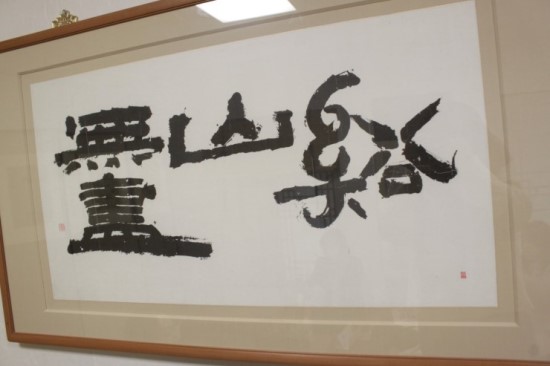 谿山無盡